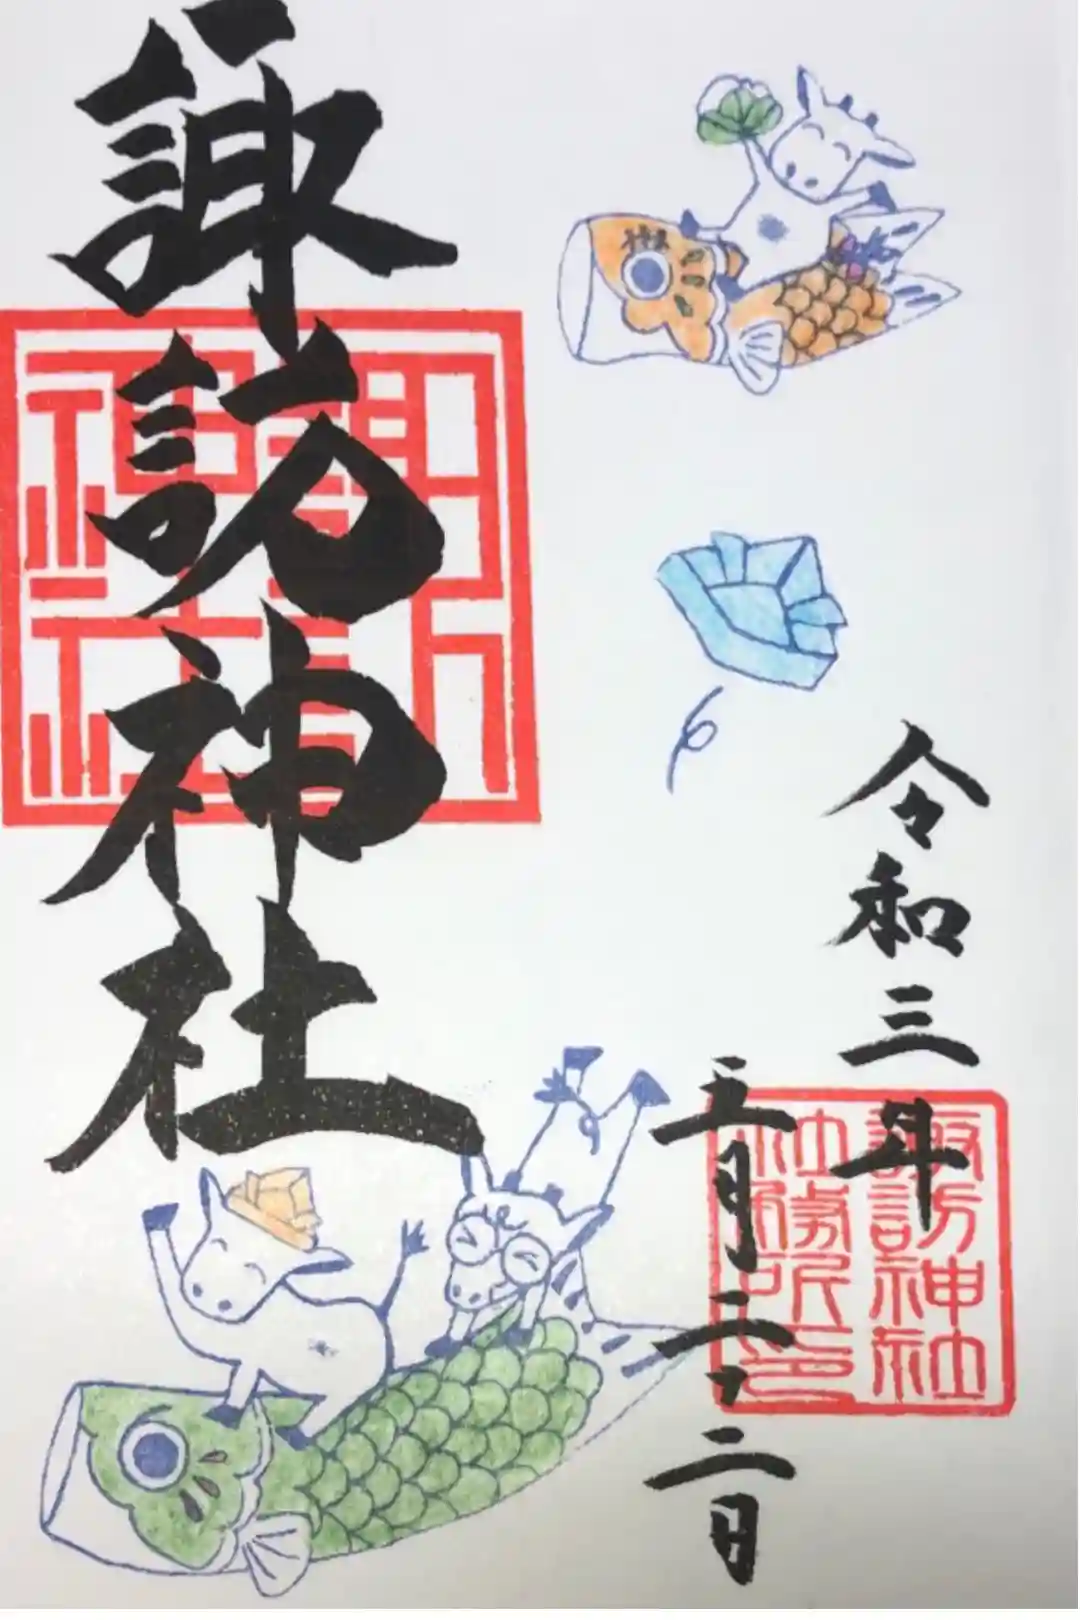 令和三年
五月二十二日
諏訪神社
社務所印
諏訪神社